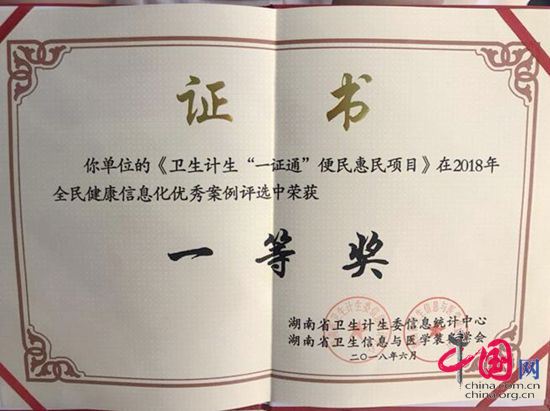 证 书
你单位的《卫生计生“一证通”便民惠民项目》在2018年
全民健康信息化优秀案例评选中荣获
一 等 奖
湖南省卫生计生委信息统计中心
湖南省卫生信息与医学装备学会
二〇一八年六月
中国网
china.com.cn
china.org.cn